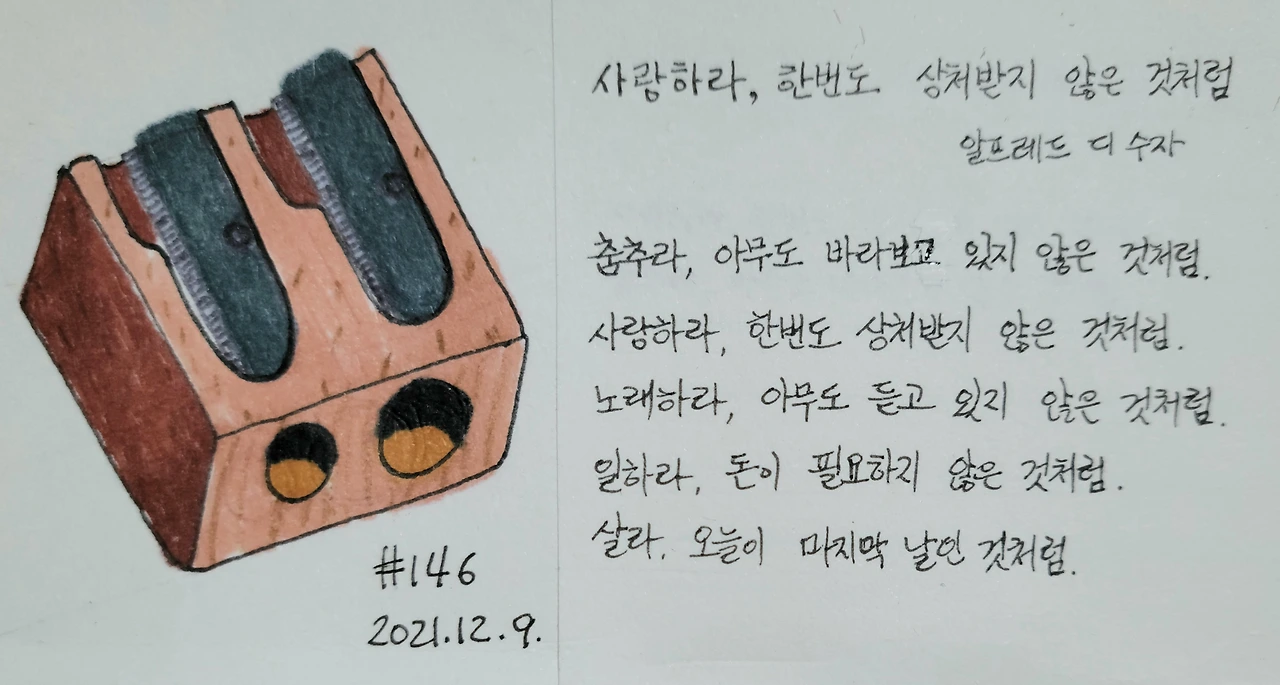 사랑하라, 한번도 상처받지 않은 것처럼
알프레드 디 수자
춤추라, 아무도 바라보고 있지 않은 것처럼.
사랑하라, 한번도 상처받지 않은 것처럼.
노래하라, 아무도 듣고 있지 않은 것처럼.
일하라, 돈이 필요하지 않은 것처럼.
살라, 오늘이 마지막 날인 것처럼.
#146
2021.12.9.